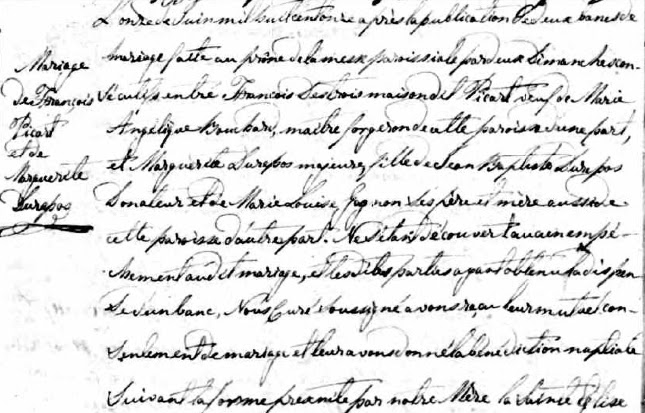 L'onze de Juin mil huit cent onze après la publication de deux bancs de
mariage faite au prône de la messe paroissiale par deux Dimanches con-
sécutifs entre François Destroismaisons dit Picart veuf de Marie
Angélique Bombard, maître forgeron de cette paroisse d'une part,
et Marguerite Surepos majeure, fille de Jean Baptiste Surepos
Donateur et de Marie Louise Gagnon ses père et mère aussi de
cette paroisse d'autre part. Ne s'étant découvert aucun empé-
chement audit mariage, et les dites parties ayant obtenu la dispen-
se d'un banc, Nous Curé soussigné avons reçu leur mutuel con-
sentement de mariage et leur avons donné la bénédiction nuptiale
suivant la forme prescrite par notre Mère la Sainte Eglise
Mariage
de François
Picart
et de
Marguerite
Surepos